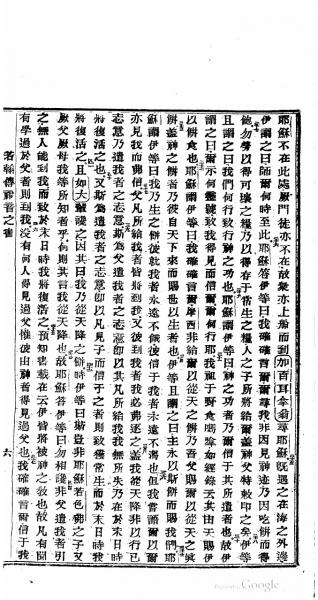 耶穌不在此處厥門徒亦不在故衆亦上船而到加百耳拿翁尋耶穌既遇之在海之外邊
伊謂之曰師爾何時至此耶穌答伊等曰我確確言爾爾尋我非因見神迹乃因吃餅而得
飽勿勞以得可壞之糧乃以得存于常生之糧人之子所將給爾蓋父神特敕印之矣伊等
且謂之曰我們何行致行神之功也耶穌謂伊等曰神之功者乃爾信于其所遣者也故伊
謂之曰爾示何號致我得見而信爾爾何行耶我祖于野食嗎拿如經錄云其由天賜伊
以餅食也耶穌謂伊等曰我確確言爾摩西非給爾以從天之餅乃吾父賜爾以從天之真
餅蓋神之餅者乃彼自天下來而賜世以生者也伊且謂之曰主永以斯餅而賜我們耶
穌謂伊等曰我乃生之餅彼就我者永遠不餓彼信于我者未遠不渴也但我嘗語爾以爾
亦見我而弗信父凡所給我者皆將到我又彼到我者我必弗逐之蓋我從天降非以行已
志意乃遣我者之志意斯爲父遣我者之志意即以其凡所給我我無所失乃在于末日時我
將復活之也又斯爲遣我者之志意即以凡見子而信于之者則致獲常生而於末日時我
將復活之且如大輩譏之因其曰我乃從天降之餅時伊等曰斯豈非耶穌若色弗之子又
厥父厥母我等所知者乎何則其言我從天降也故耶穌答伊等曰勿相譏非父遣我者引
之無人能到我而致於末日時我將復活之預知書載在云伊皆將被神之教也故凡有聞
有學過於父者則到我没有何人得見過父惟彼由神者得見過父也我確確言爾信于我
若翰傳福音之書
六
Digitized by Google